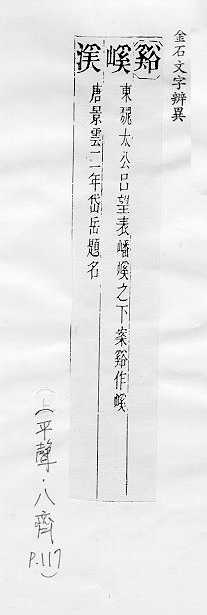 金石文字辨異
谿
嵠 東魏太公呂望表嶓嵠之下案谿作嵠
渓 唐景雲二年岱岳題名
(上平聲·八齊 P.117)